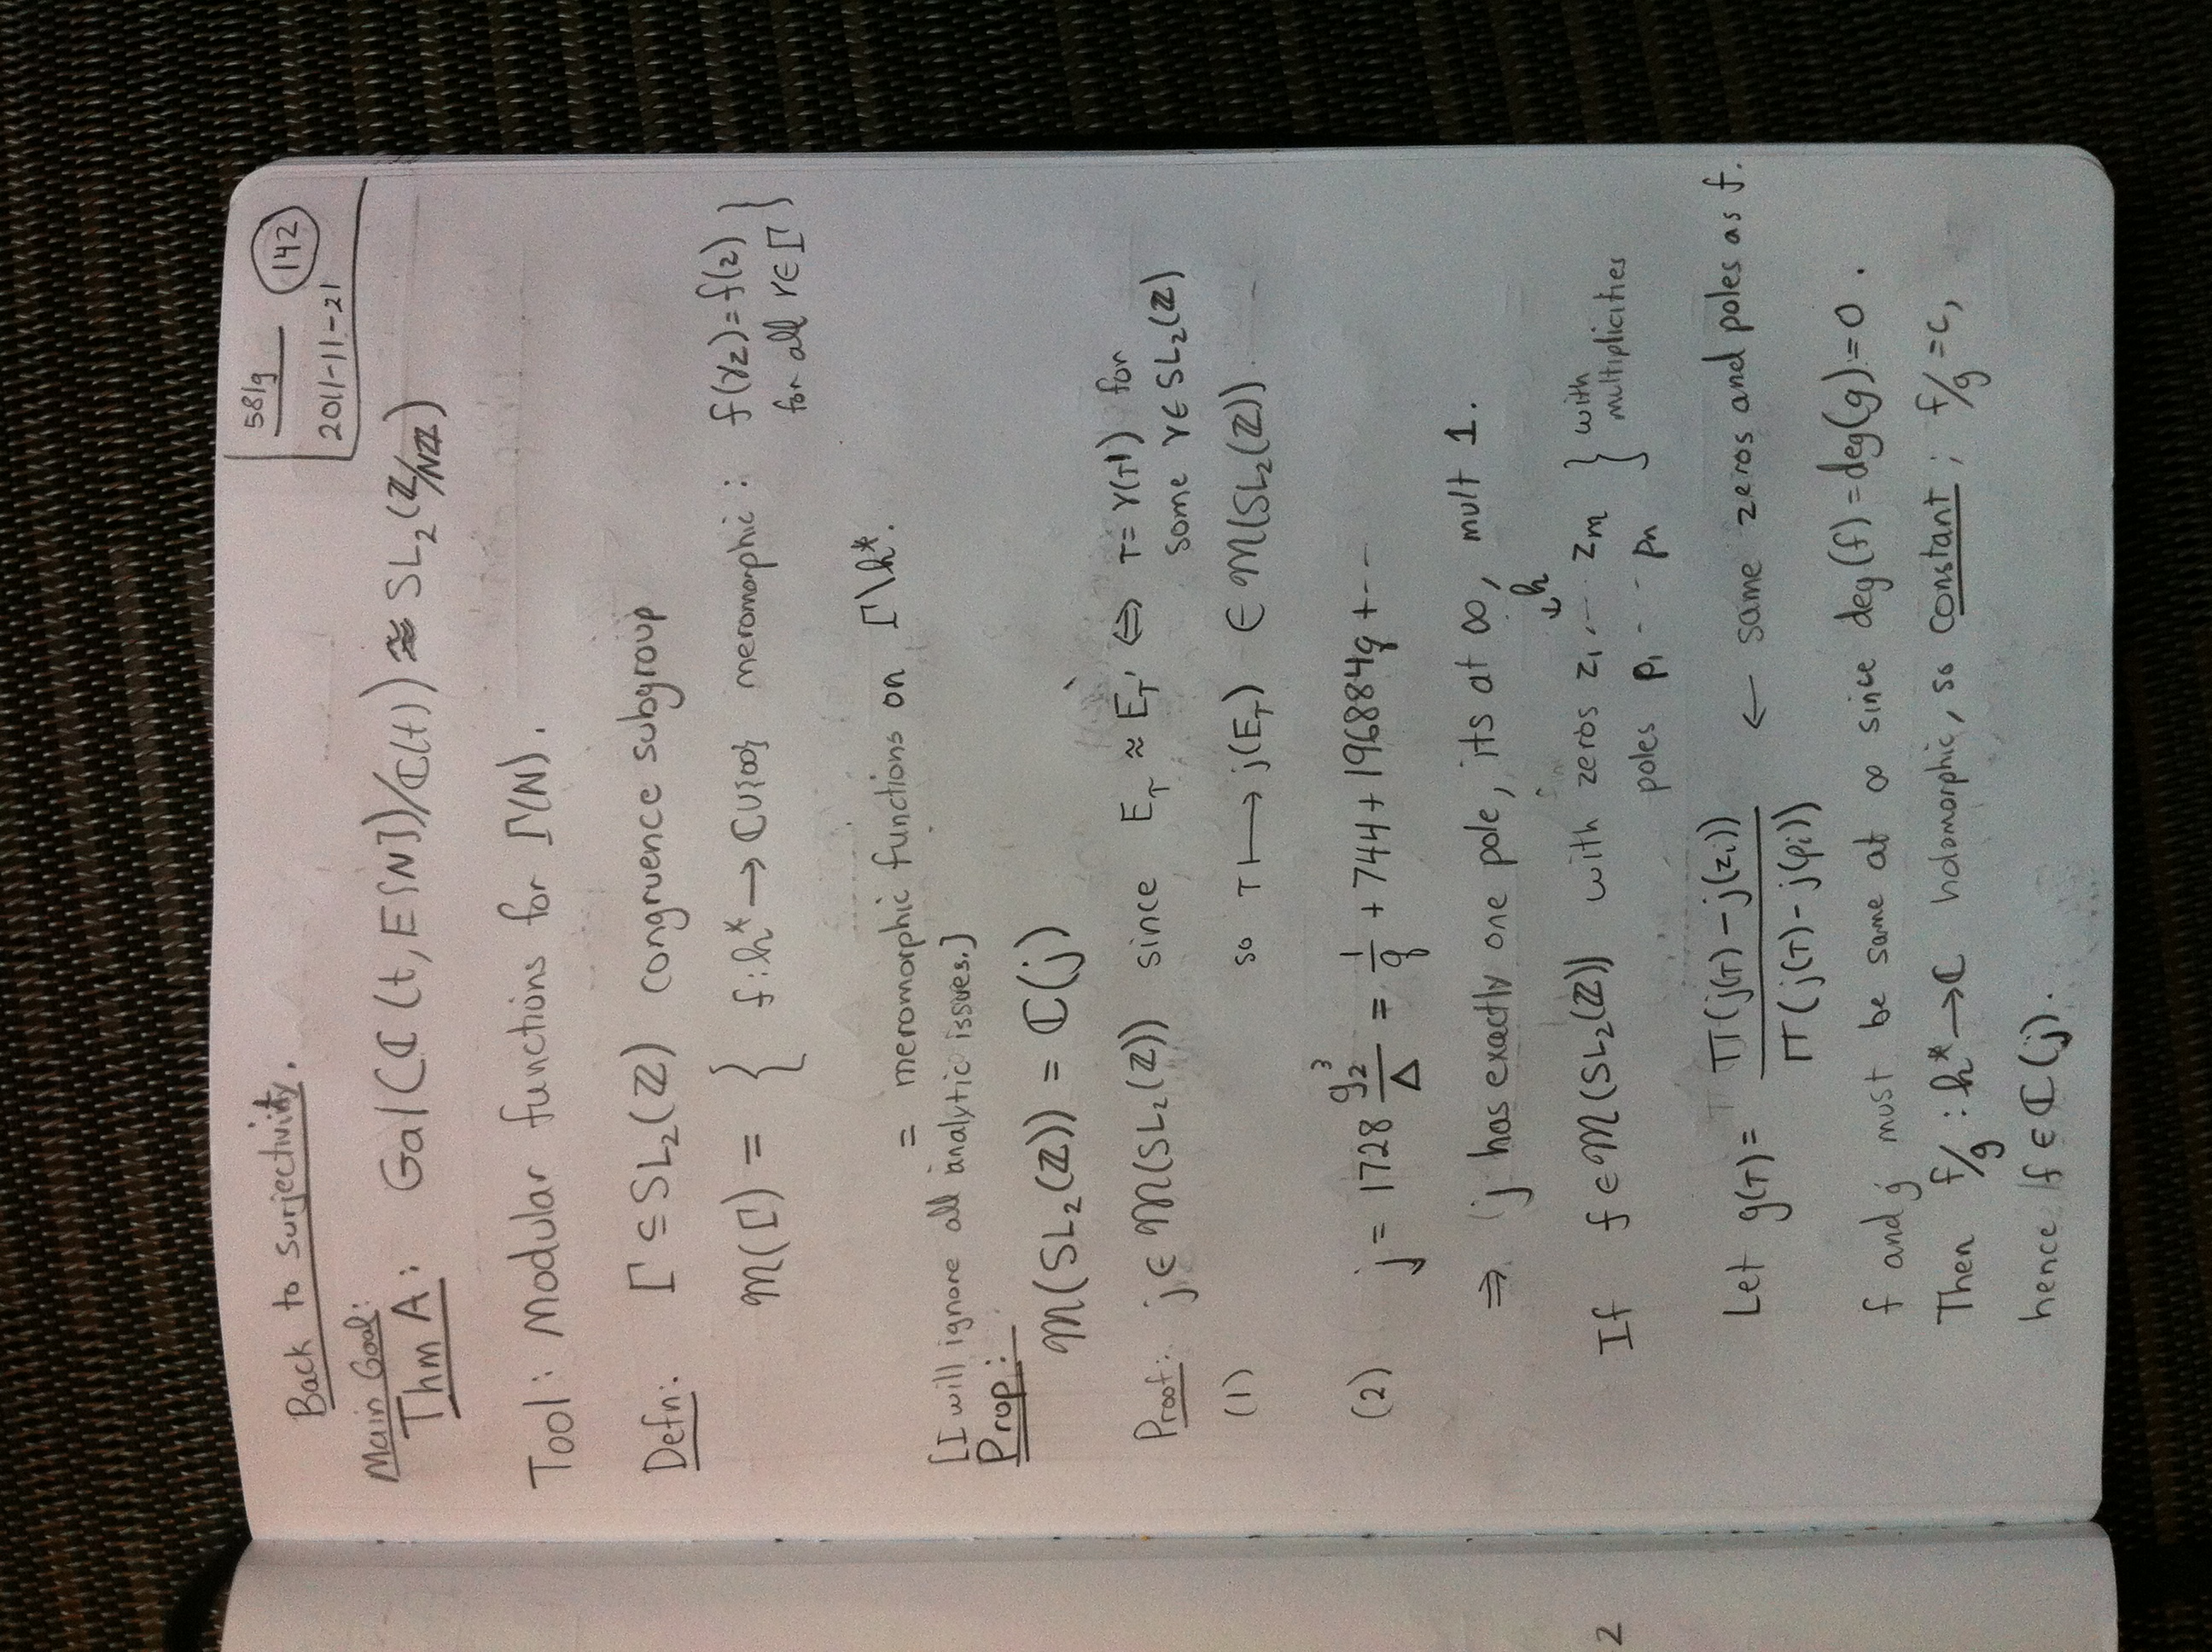 581g
142
2011-11-21
Back to surjectivity.
Main Goal:
Thm A: Gal(ℂ(t, E[N])/ℂ(t)) ≈ SL₂(ℤ/Nℤ)
Tool: Modular functions for Γ(N).
Defn: Γ ⊆ SL₂(ℤ) congruence subgroup
𝓜(Γ) = { f: h* → ℂ∪{∞} meromorphic : f(γz)=f(z)
for all γ∈Γ }
= meromorphic functions on Γ\h*.
[I will ignore all analytic issues.]
Prop:
𝓜(SL₂(ℤ)) = ℂ(j)
Proof: j ∈ 𝓜(SL₂(ℤ)) since E_τ ≈ E_τ' ⇔ τ = γ(τ') for
some γ ∈ SL₂(ℤ)
(1) so τ ↦ j(E_τ) ∈ 𝓜(SL₂(ℤ)).
(2) j = 1728 g₂³/Δ = 1/q + 744 + 196884q + ...
⇒ j has exactly one pole, its at ∞, mult 1.
↓h
If f ∈ 𝓜(SL₂(ℤ)) with zeros z₁, ... zm } with
poles p₁ ... pn } multiplicities
Let g(τ) = Π(j(τ) - j(zᵢ)) / Π(j(τ) - j(pᵢ)) ← same zeros and poles as f.
f and g must be same at ∞ since deg(f) = deg(g) = 0.
Then f/g : h* → ℂ holomorphic, so constant; f/g = c,
hence f ∈ ℂ(j).
2